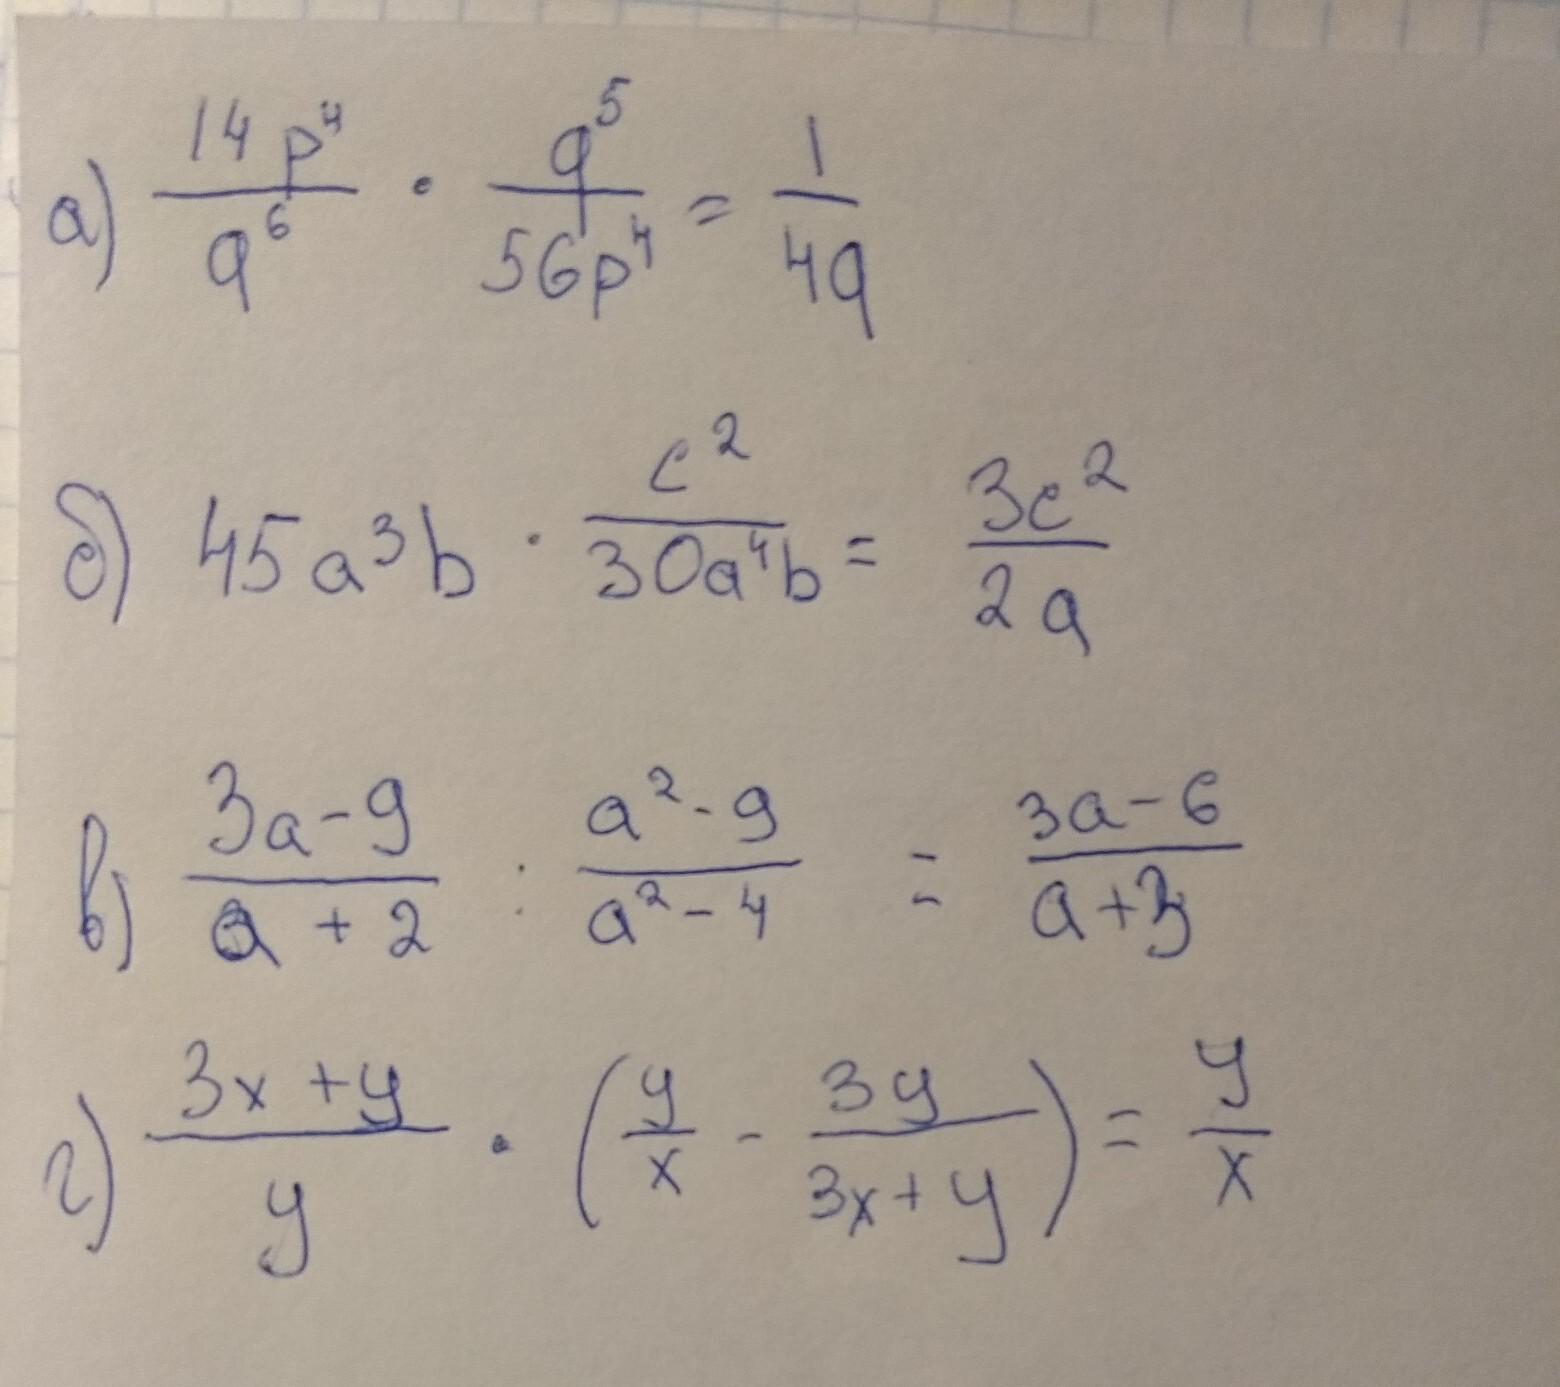 а) 14p⁴/q⁶ · q⁵/56p⁴ = 1/4q
б) 45a³b · c²/30a⁴b = 3c²/2a
в) 3a-9/a+2 : a²-9/a²-4 = 3a-6/a+3
г) 3x+y/y · (y/x - 3y/3x+y) = y/x